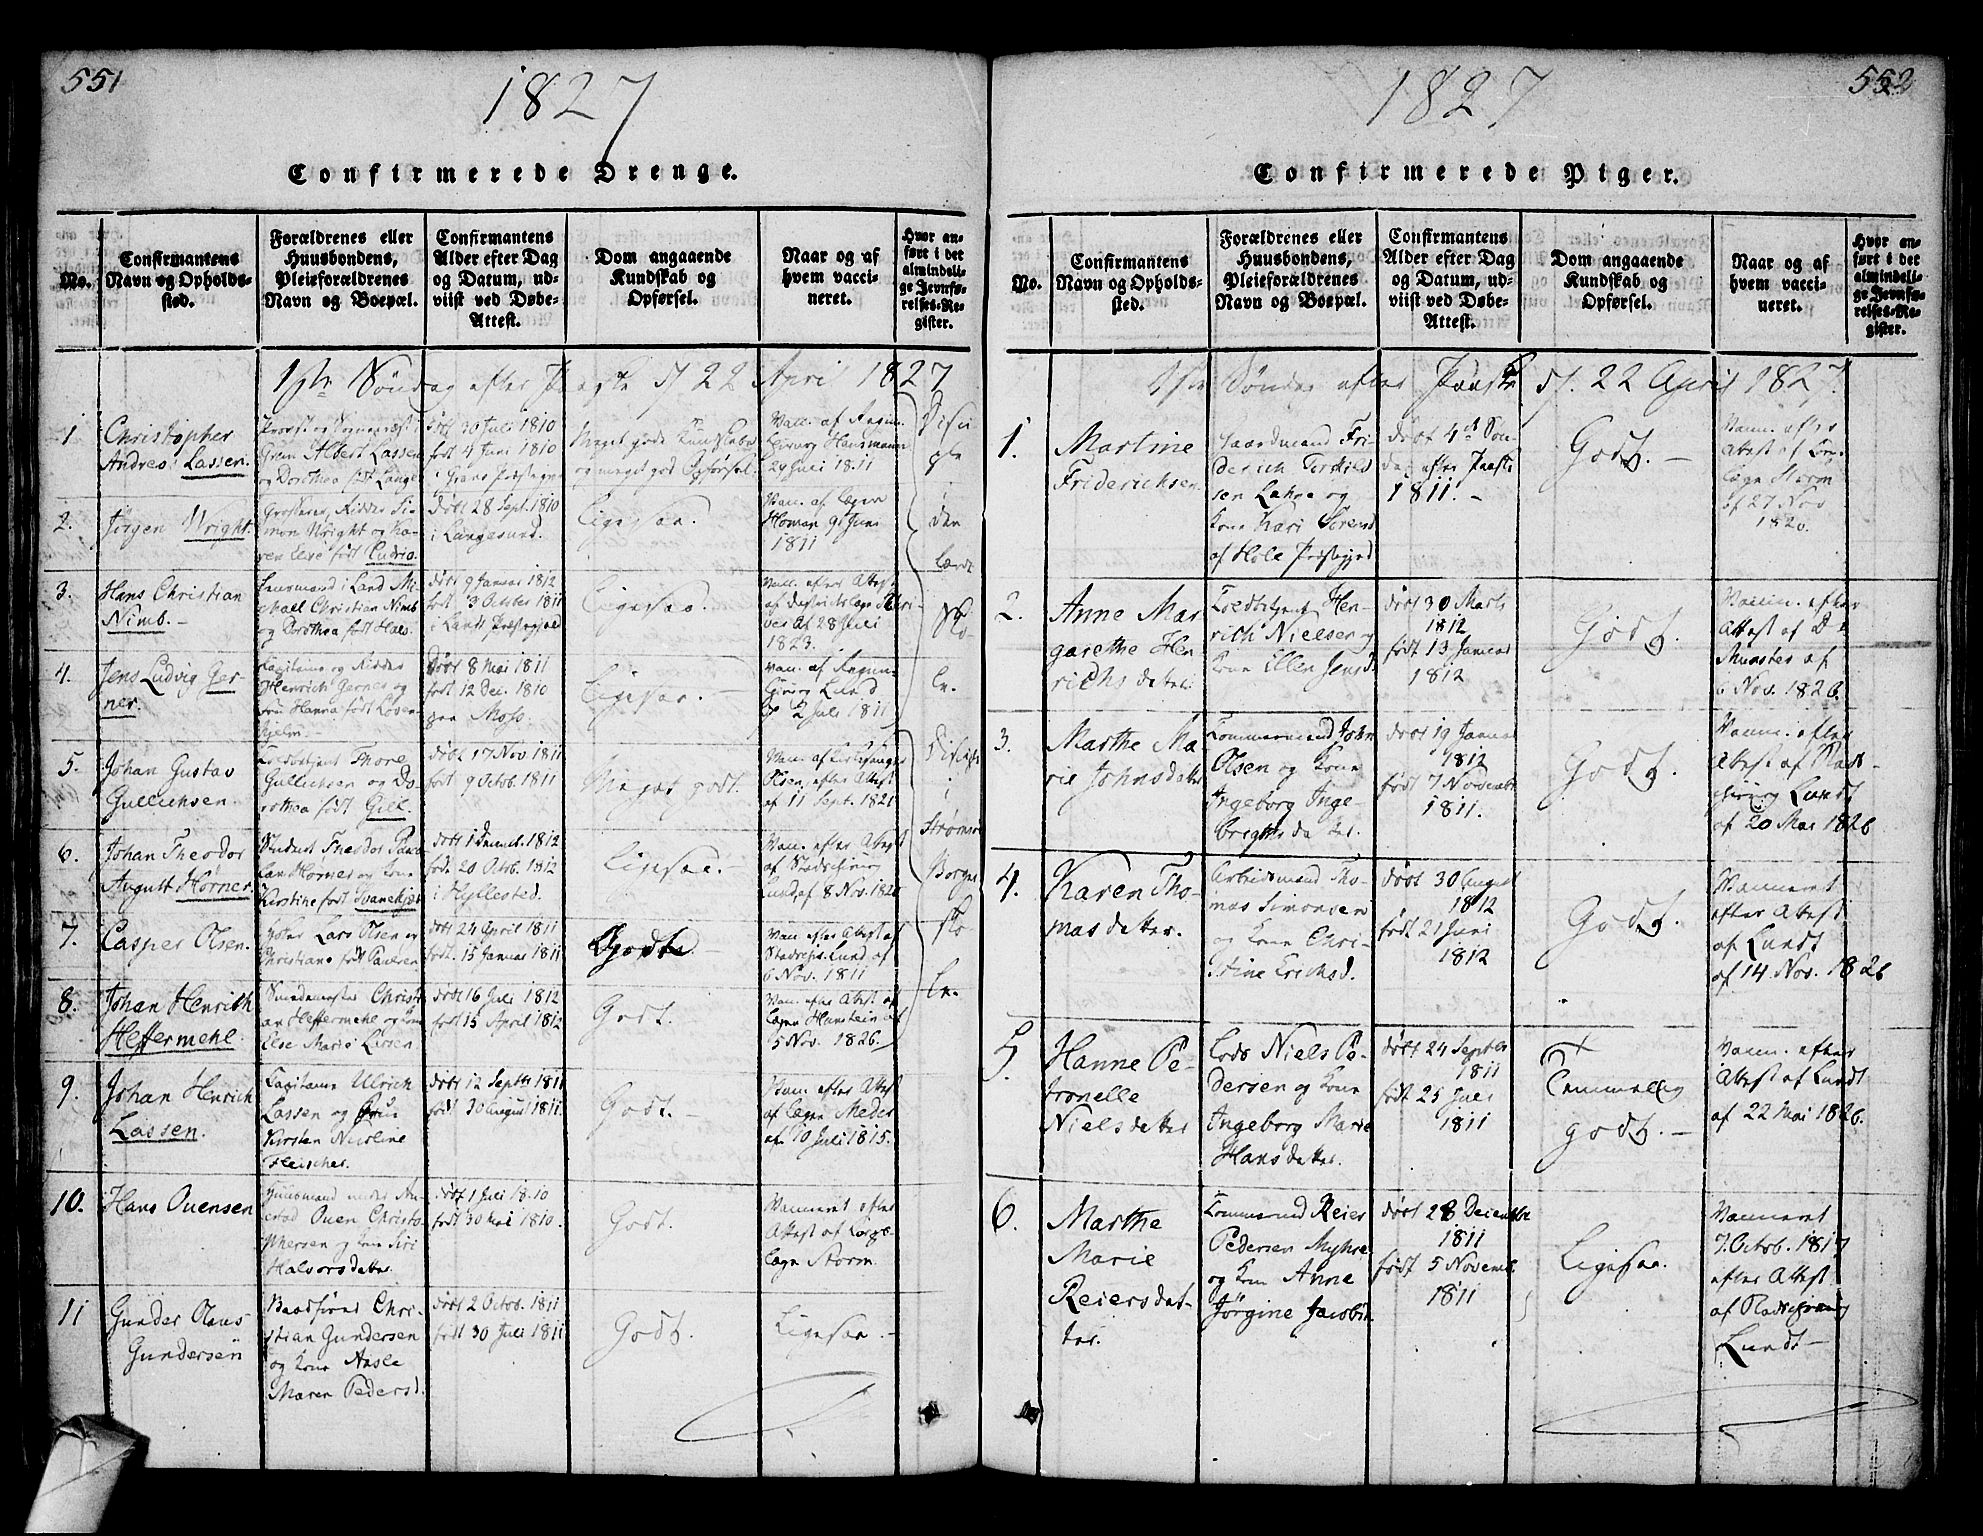 551
1827
Confirmerede Drenge.
No.
Confirmantens
Navn og Opholds-
sted.
Forældrenes eller
Huusbondens,
Pleieforældrenes
Navn og Boepæl.
Confirmantens
Alder efter Dag
og Datum, ud-
viist ved Døbe-
Attest.
Dom angaaende
Kundskab og
Opførsel.
Naar og af
hvem vacci-
neret.
Hvor an-
ført i det
almindeli-
ge Jevnfø-
relses-Re-
gister.
Søndag efter Paaske d 22 April 1827
1
Christopher
Andreas Lassen.
Provst og Sognepræst i
Gran Albert Lassen
og Dorothea født Lange
døbt 30 Juli 1810
født 4 Juni 1810
i Grans Præstegield
Meget gode Kundskaber
og meget god Opførsel.
Vacc. af
Hansmann
29 Juli 1811
2.
Jørgen Wright.
Ridder Si-
mon Wright og Ka-
ren Else født
døbt 28 Sept. 1810
i Langesund.
Ligesaa.
Vac. af Læge
Homan 9 Juni
1811
3.
Hans Christian
Nimb. -
Lensmand i Land Mi-
chall Christian Nimb
og Dorothea født
døbt 9 Januar 1812
født 3 October 1811
i Lands Præstegield
Ligesaa.
Vac. efter Attest
af Districtslæge
af 28 Juli
1823.
4.
Jens Ludvig Ger-
ner.
Capitaine og Ridder
Henrich Gerner og
Fru Hanna født Løven-
skjolm.
Døbt 8 Mai 1811
født 12 Dec. 1810
paa Moss.
Ligesaa. -
Vac. af
Lund
2 Juli 1811
5.
Johan Gustav
Gullichsen.
Thore
Gullichsen og Do-
rothea født
døbt 17 Nov 1811
født 9 Octob. 1811
Meget godt.
Vac. af Kirkesanger
Olsen, efter Attest
af 11 Sept. 1821
6.
Johan Theodor
August Hørner.
Theodor
Hørner og Kone
Kirstine født Svanekjær
døbt 1 Decemb. 1812
født 20 Octob. 1812
i Hyllested.
Ligesaa.
Vac. efter Attest
af
Lund af 8 Nov. 1826
7.
Casper Olsen.
Lars Olsen og
Christiane født Paulsen
døbt 24 April 1811
født 15 Januar 1811
Godt.
Vac. efter Attest af
Lund af
6 Nov. 1811
8.
Johan Henrich
Heffermehl.
Christi-
an Heffermehl og Kone
Else Marie Larsen
døbt 16 Juli 1812
født 15 April 1812
Godt.
Vac. efter Attest af
Læge Hunstein af
5 Nov. 1826.
9.
Johan Henrich
Lassen.
Capitaine Ulrich
Lassen og Fru
Kirsten Nicoline
Fleischer.
døbt 12 Septbr 1811
født 30 August 1811.
Godt. -
Vac. efter Attest
af Læge Meder
af 10 Juli 1815.
10.
Hans Ovensen
Huusmand under
Oven Christo-
phersen og Kone Siri
Halvorsdatter.
døbt 1 Juli 1810
født 30 Mai 1810.
Godt.
Vaccineret efter
Attest af
Læge Storm
11
Gunder Olaus
Gundersen
Chri-
stian Gundersen
og Kone Aasle
Maren Pedersd.
døbt 2 Octob. 1811
født 30 Juli 1811
Godt.
Ligesaa. -
Disci-
ple
i
den
lærde
Sko-
le.
Disciple
i
Strømsøe
Borger
sko-
le.
552
1827
Confirmerede Piger.
No.
Confirmantens
Navn og Opholds-
sted.
Forældrenes eller
Huusbondens,
Pleieforældrenes
Navn og Boepæl.
Confirmantens
Alder efter Dag
og Datum, ud-
viist ved Døbe-
Attest.
Dom angaaende
Kundskab og
Opførsel.
Naar og af
hvem vacci-
neret.
Hvor an-
ført i det
almindeli-
ge Jevnfø-
relses-Re-
gister.
1ste Søndag efter Paaske d. 22 April 1827.
1.
Martine
Friderichsen
Gaardmand Fri-
derich Terkild-
sen Lahne og
Kone Kari Sørensd
af Hole Præstegjeld
døbt 4de Søn-
dag efter Paaske
1811. -
Godt. -
Vacc. efter
Attest af
Læge Storm
af 27 Nov
1826.
2.
Anne Mar
garethe Hen
richsdatter
Hen-
rich Nielsen og
Kone Ellen Jensd.
døbt 30 Marts
1812
født 13 Januar
1812
Godt.
Vaccin. efter
Attest af Dr
Münster af
6 Nov. 1826.
3.
Marthe Ma
rie Johnsdatter
Tømmermand John
Olsen og Kone
Ingeborg Inge-
bregtsdatter.
døbt 19 Januar
1812
født 7 November
1811.
Godt.
Vaccin. efter
Attest af
Lundt
af 20 Mai 1826
4.
Karen Tho-
masdatter.
Arbeidsmand Tho-
mas Simonsen
og Kone Chri-
stine Erichsd.
døbt 30 August
1812
født 21 Juni
1812
Godt.
Vaccineret
efter Attest
af Lundt
af 14 Nov. 1826
5.
Hanne Pe-
tronelle
Nielsdatter
Lods Niels Pe-
dersen og Kone
Ingeborg Marie
Hansdatter.
døbt 24 Septbr
1811
født 25 Juli
1811
Temmelig
godt. -
Vaccin. efter
Attest af Lundt
af 22 Mai 1826.
6.
Marthe
Marie
Reiersdat-
ter.
Tømmermd Reier
Pedersen Myhre
og Kone Anne
Jørgine Jacobsd.
døbt 28 December
1811
født 5 Novemb.
1811
Ligesaa.
Vaccineret
7. Octob. 1817
efter Attest
af
Lundt -